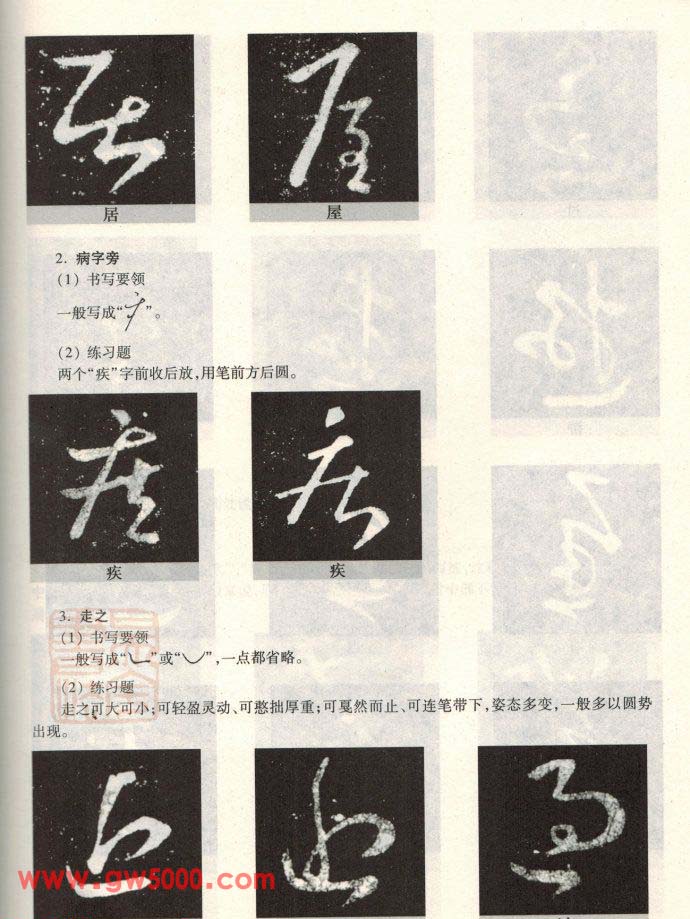 居 屋
2. 病字旁
(1) 书写要领
一般写成“疒”。
(2) 练习题
两个“疾”字前收后放,用笔前方后圆。
疾 疾
3. 走之
(1) 书写要领
一般写成“”或“”,一点都省略。
(2) 练习题
走之可大可小;可轻盈灵动、可憨拙厚重;可戛然而止、可连笔带下,姿态多变,一般多以圆势
出现。
www.gw5000.com